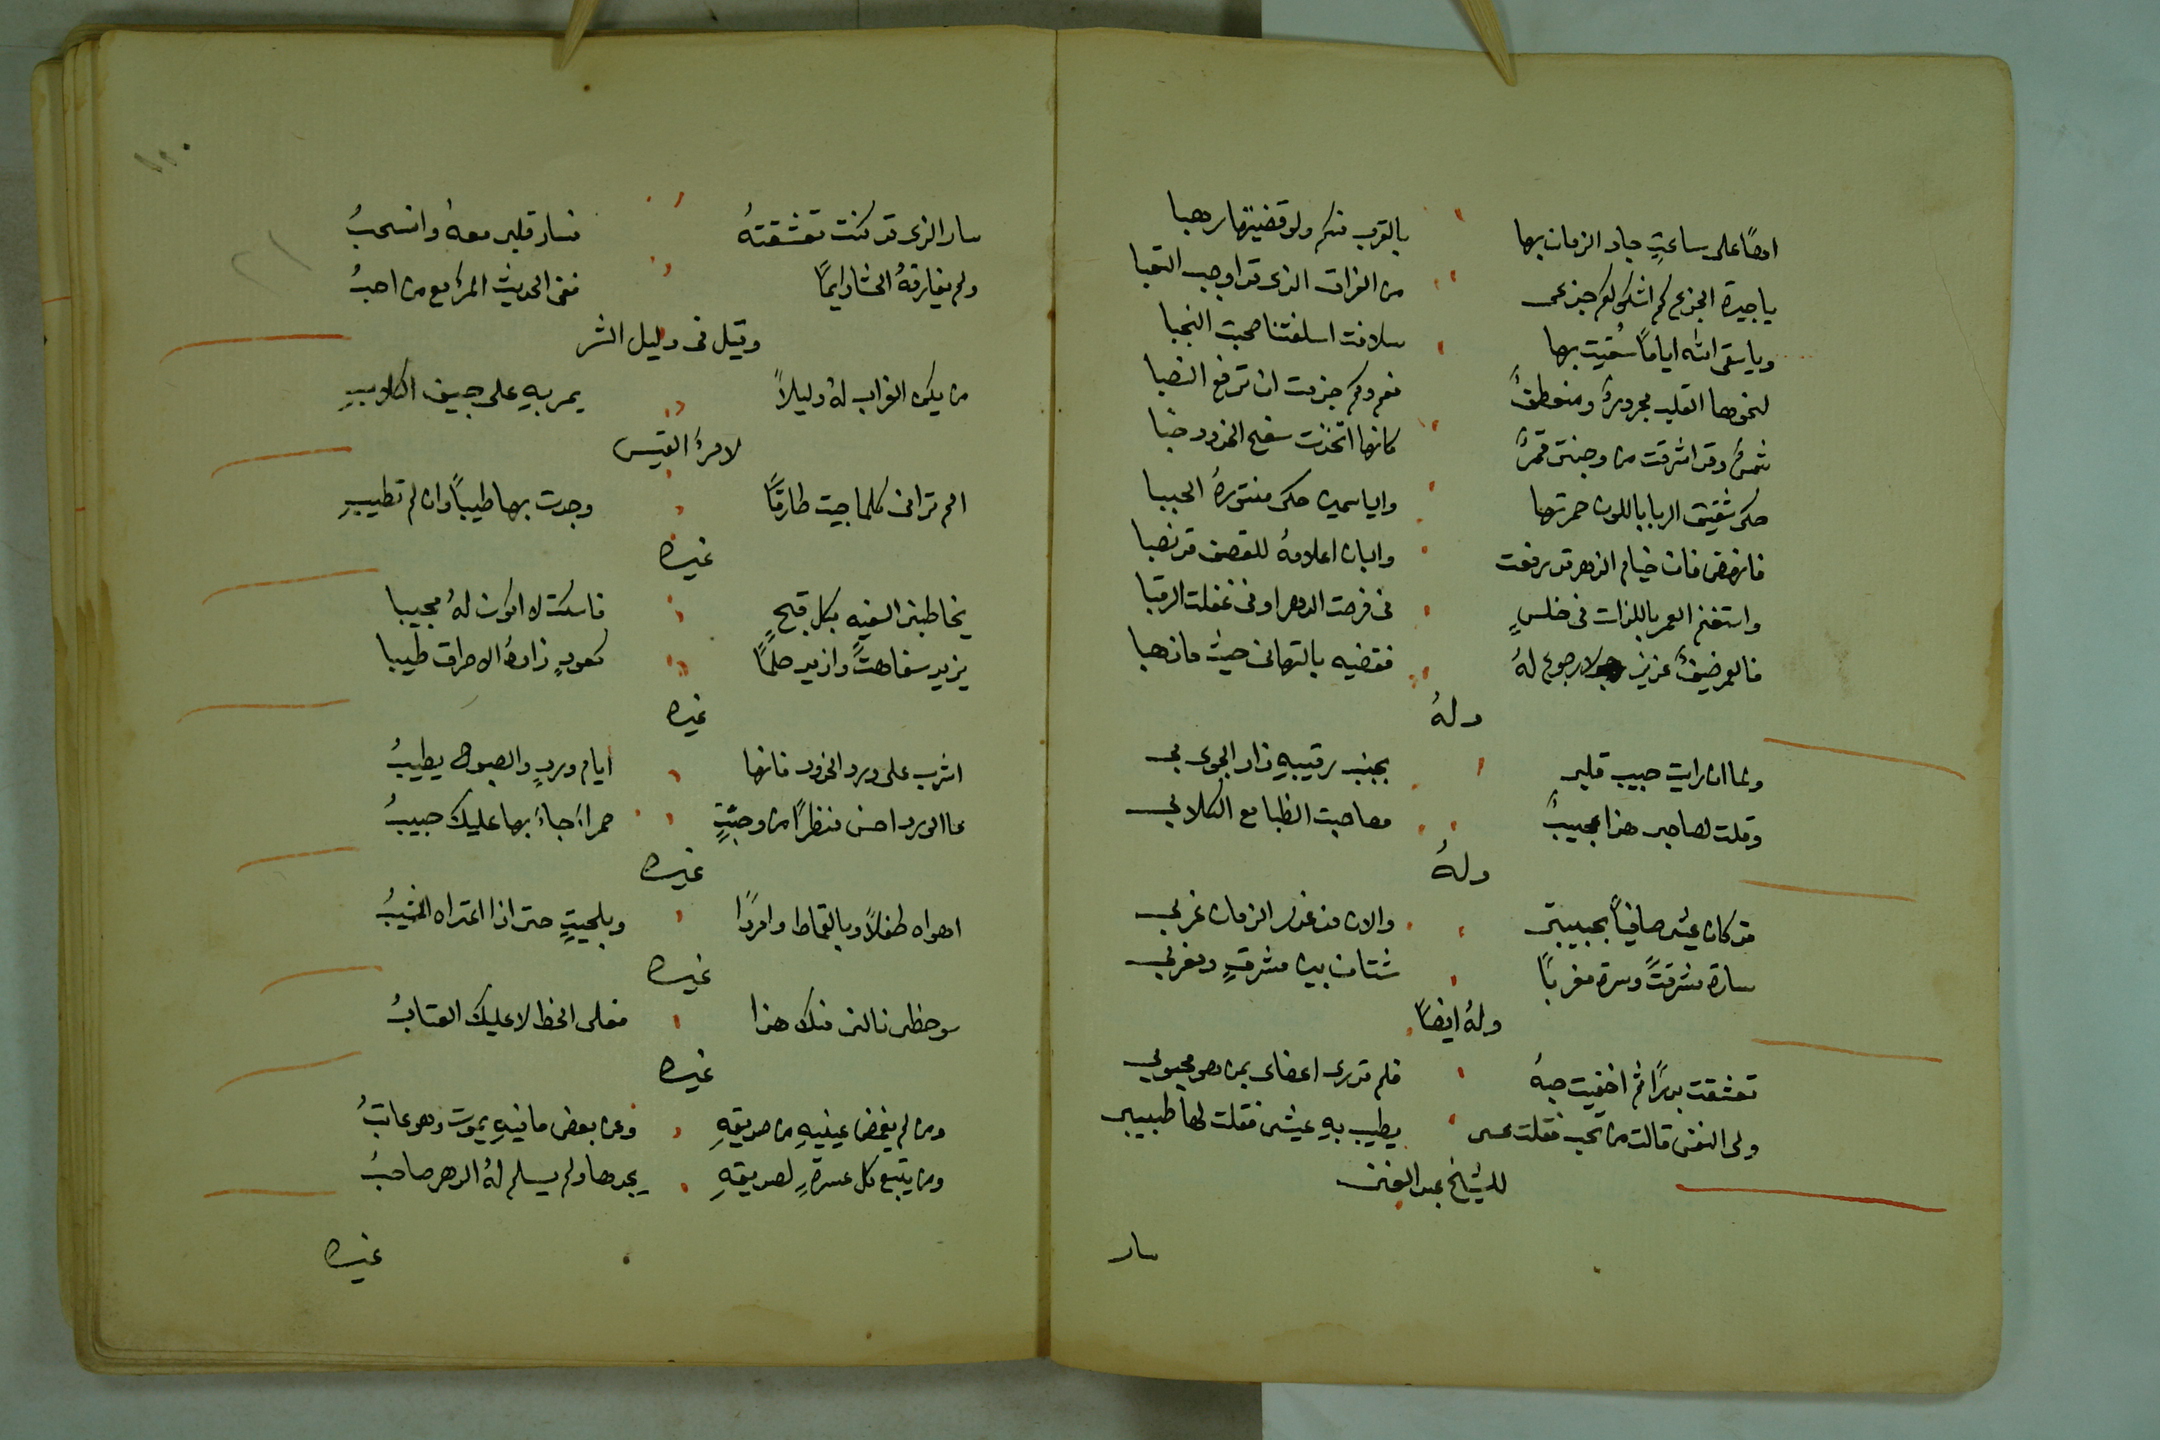 اهًا على ساعةٍ جاد الزمان بها بالقرب منكم ولو قضيتها رهبا
يا جيرة الجزع كم اشكي لكم جزعي من الفراق الذي قد اوجب التعبا
ويا سقى الله ايامًا سُقيت بها سلافت اسلفتنا صحبت النجبا
لنحوها القلب مجرورٌ ومنعطفٌ فهم وكم جزمت ان ترفع النصبا
شمسٌ وقد اشرقت من وجنتي قمرٌ كانها اتخذت سفح الخدود خبا
حكى شقيق الربا باللون حمرتها والياسمين حكى منثورهُ الحببا
فانهض فان خيام الزهر قد رفعت والبان اعلامهُ للقصف قد نصبا
واستغنم العمر باللذات في خلسٍ في فرصت الدهر او في غفلت الرقبا
فالعمر ضيفٌ عزيز لا رجوع لهُ فقضيه بالتهاني حيث ما ذهبا
ولهُ
ولما ان رايت حبيب قلبي بجنب رقيبهِ زاد الجوى بي
وقلت لصاحبي هذا عجيبٌ مصاحبت الظبا مع الكلابي
ولهُ
قد كان عيشي صافيًا بحبيبتي والان من غدر الزمان غربي
سارة مشرقتًا وسرة مغربًا شتان بين مشرقٍ ومغربي
ولهُ ايضًا
تعشقت بدرًا ثم اخفيت حبهُ فلم تدري اعضاي بمن هو محبوبي
ولي النفس قالت من تحب فقلت عسى يطيب بهِ عيشي فقلت لها طبيبي
للشيخ عبد الغني
سار
سار الذي قد كنت تعشقتهُ فسار قلبي معهُ وانسحبُ
ولم يفارقهُ الحشا دايمًا ففي الحديث المرُ مع من احبُ
وقيل في دليل الشر
من يكن الغراب لهُ دليلاً يمر بهِ على جيف الكلابِ
لامرءَ القيس
الم تراني كلما جيت طارقًا وجدت بها طيبًا وان لم تطيبِ
غيره
يخاطبني السفيه بكل قبحٍ فاسكت ان اكون لهُ مجيبا
يزيد سفاهتًا وازيد حلمًا كعودٍ زادهُ الاحراق طيبا
غيره
اشرب على ورد الخدود فانها ايام وردٍ والصبوح يطيبُ
ما الورد احسن منظرًا من وجنتٍ حمراءَ جاءَ بها عليك حبيبُ
غيره
اهواه طفلاً وبالقماط وامردًا وبلحيتٍ حتى اذا اعتراه المشيبُ
غيره
سو حظي نالني منك هذا فعلى الحظ لا عليك العتابُ
غيره
ومن لم يغمض عينيهِ من صديقهِ وعن بعض ما فيهِ يموت وهو عاتبُ
ومن يتبع كل عسرةٍ لصديقهِ يجدها ولم يسلم لهُ الدهر صاحبُ
غيره